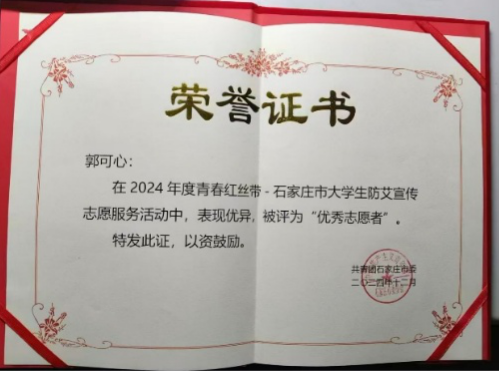 荣誉证书
郭可心：
在 2024 年度青春红丝带 - 石家庄市大学生防艾宣传
志愿服务活动中，表现优异，被评为“优秀志愿者”。
特发此证，以资鼓励。
共青团石家庄市委
二〇二四年十二月